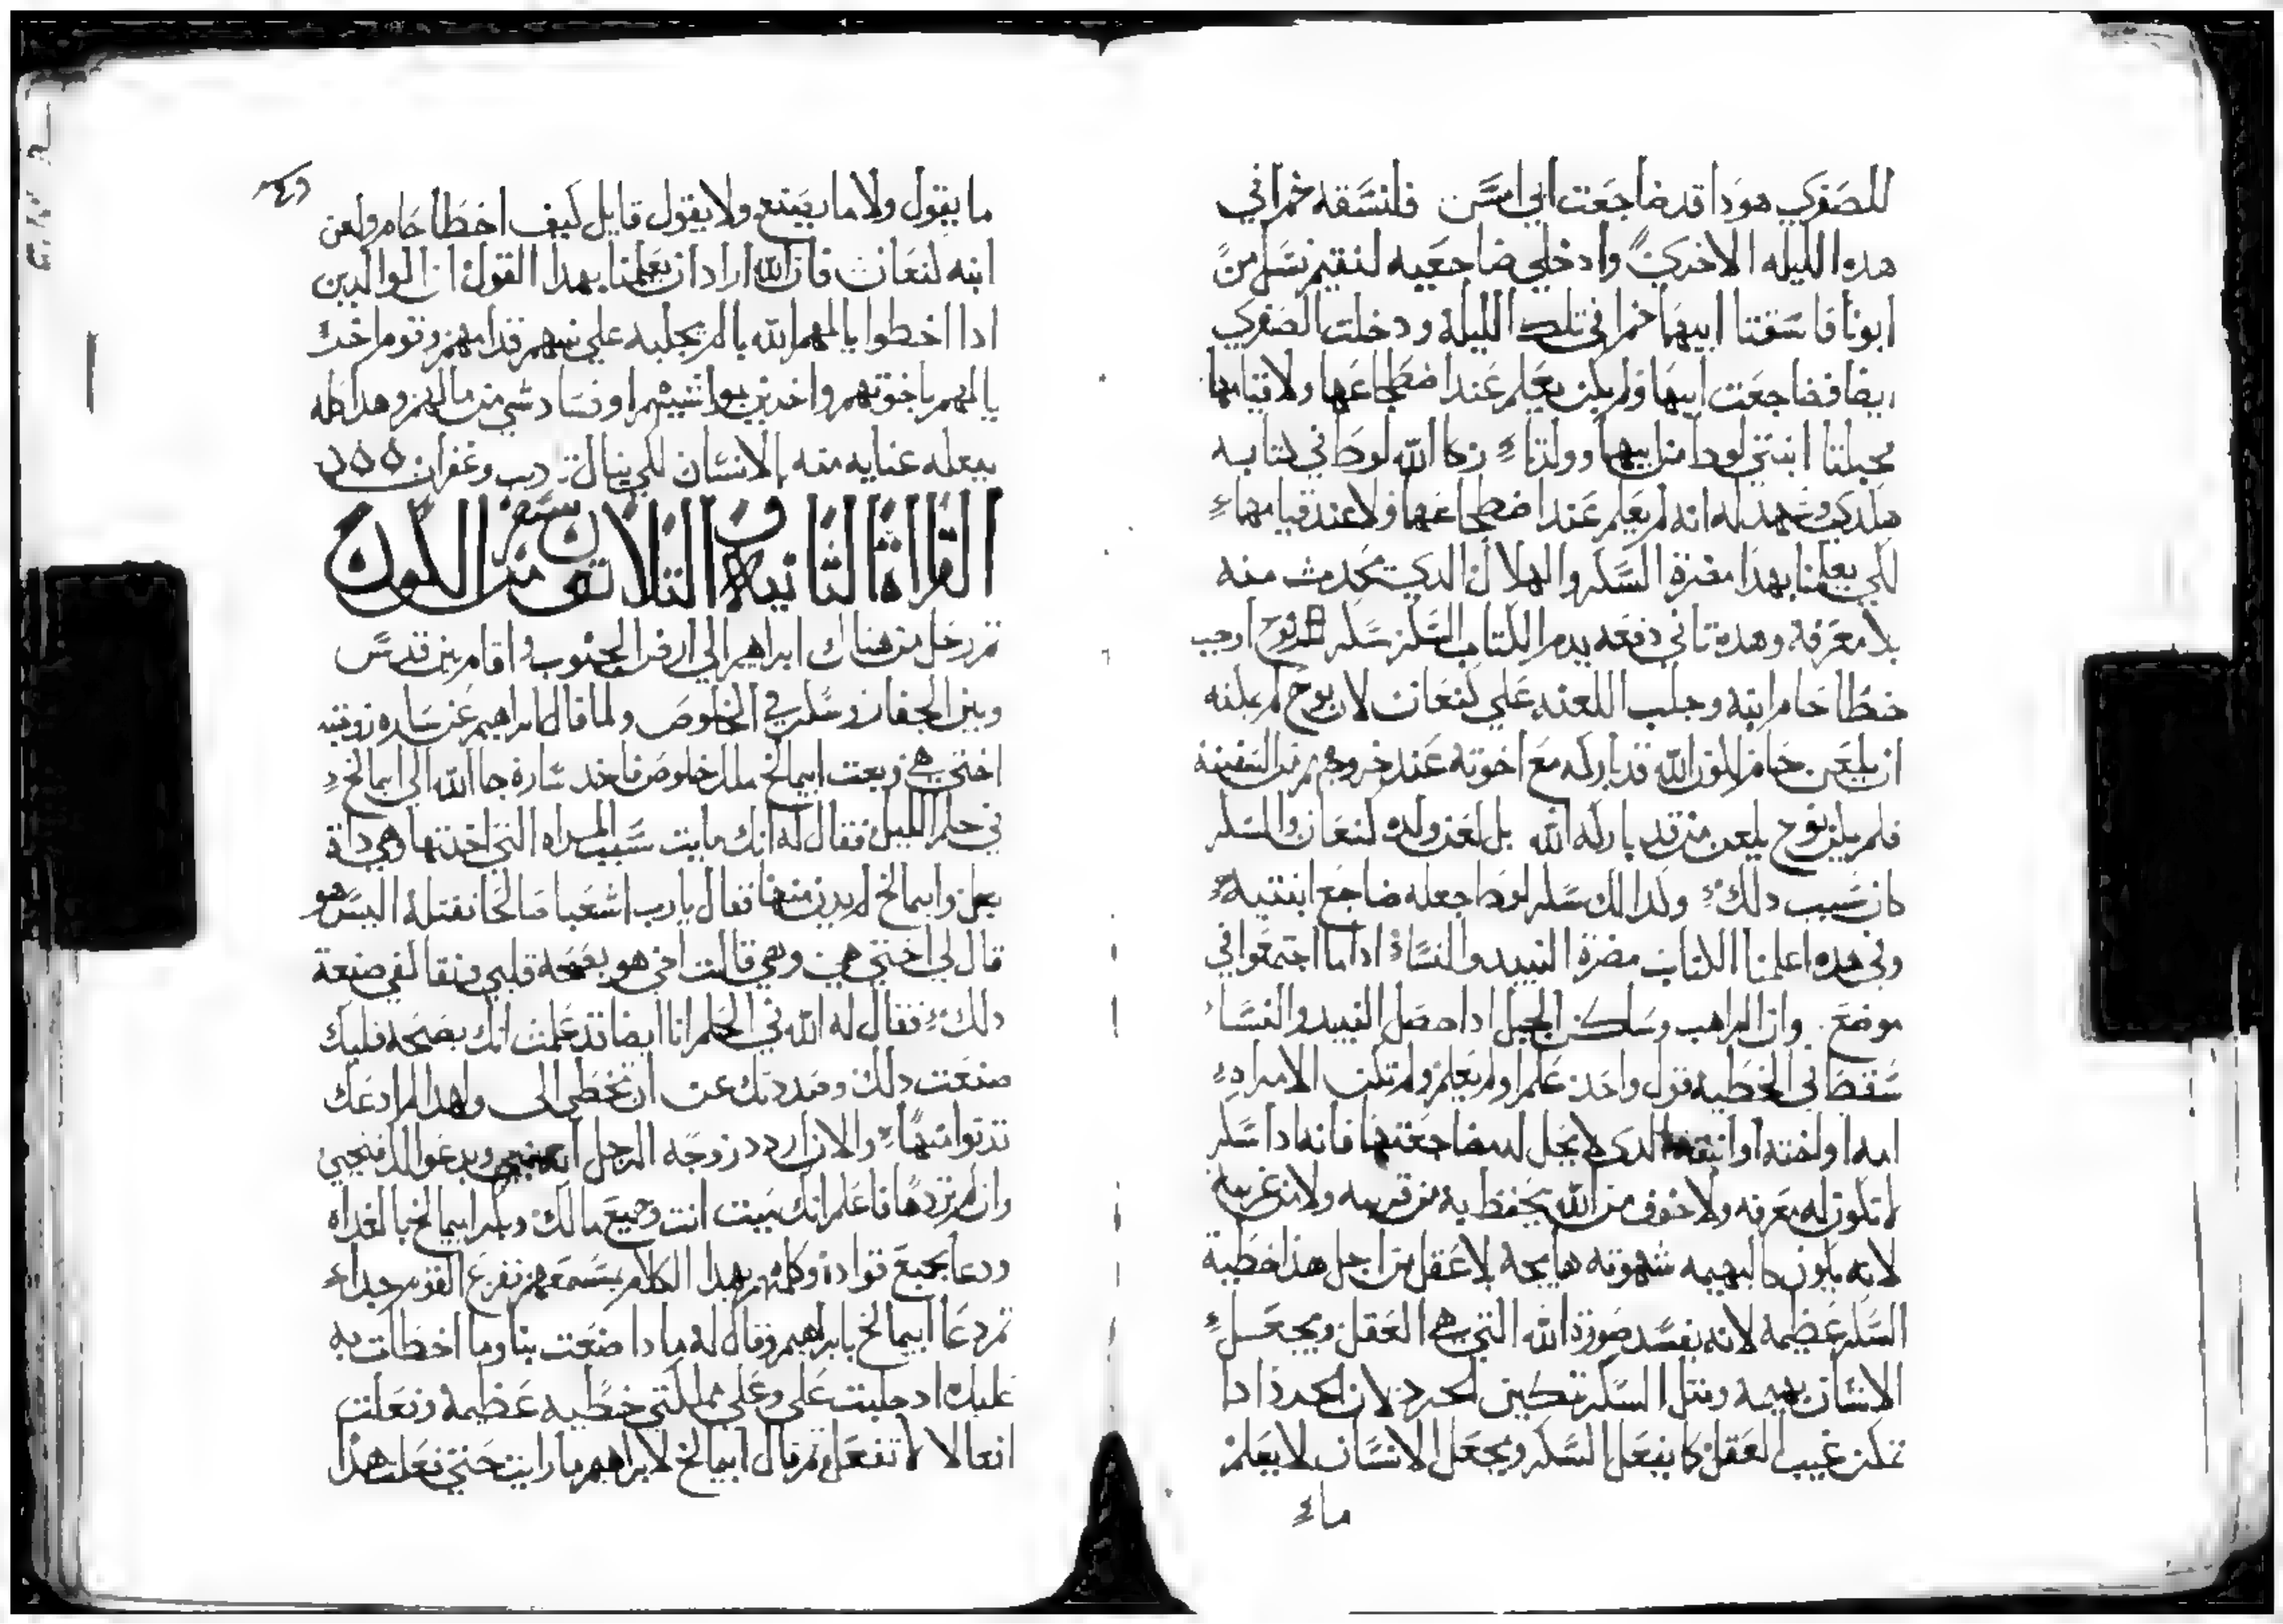 للصغرى هودا قد ضاجعت ابى امس فلنسقه خمرا فى
هده الليله الاخرى وادخلى ضاجعيه لنقيم نسل من
ابونا فاسقتا ابيهما خمرا فى تلك الليلة ودخلت الصغرى
ايضا فضاجعت ابيها ولم يكن يعلم عند اضطجاعها ولا قيامها
فحبلتا ابنتى لوط من ابيهما وولدتا زكا الله لوط فى كتابه
هكدى وشهد له انه لم يعلم عند اضطجاعها ولا عند قيامها
لكى يعلمنا بهدا مضرة السكر والهلاك الدى يحدث منه
بلا معرفة وهده تانى دفعه يدم الكتاب السكر سكر نوح اوجب
خطا حام ابنه وجلب اللعنه على كنعان لان نوح لم يمكنه
ان يلعن حام لان الله قد باركه مع اخوته عند خروجهم من السفينه
فلم يكن نوح يلعن من قد باركه الله بل لعن ولده كنعان والسكر
كان سبب دلك وكدالك سكر لوط جعله ضاجع ابنتيه
وفى هده اعلمنا الكتاب مضرة النبيد والنسا ادا ما اجتمعوا فى
موضع وان الراهب وساكن الجبل ادا حصل النبيد والنسا
سقط فى الخطيه قول واحد علم او لم يعلم ولم تكن الامراه
امه او اخته او ابنته الدى لا يحل له مضاجعتها فانه ادا سكر
لا تكون له معرفه ولا خوف من الله يحفظ به من قريبه ولا من غريبه
لانه يكون كالبهيمه شهوته هايجة بلا عقل من اجل هذا خطية
السكر عظيمه لانه يفسد صورة الله التى هى العقل ويجعل
الانسان بهيمه ومتل السكر تمكين الحرد لان الحرد ادا
تمكن غيب العقل كما يفعل السكر ويجعل الانسان لا يعلم
ما
ما يقول ولا ما يصنع ولا يقول قايل كيف اخطا حام ولعن
ابنه كنعان فان الله اراد ان يعلمنا بهدا القول ان الوالدين
ادا اخطوا يالمهم الله بالم يجلبه على بنيهم قدامهم وقوم اخر
يالمهم باخوتهم واخرين بمواشيهم او فساد شى من مالهم وهدا كله
يفعله عنايه منه بالانسان لكى ينال ادب وغفران
القراة التانيه والتلاتون من سفر الكون
تم رحل من هناك ابراهيم الى ارض الجنوب واقام بين قدس
وبين الجفار وسكن فى الخلوص ولما قال ابراهيم عن ساره زوجته
اختى هى وبعت ابيمالخ ملك خلوص فاخد سارة جا الله الى ابيمالخ
فى حلم الليل فقال له انك مايت بسبب المراه التى اخدتها وهى داة
بعل وابيمالخ لم يدن منها فقال يارب اشعبا صالحا تقتله اليس هو
قال لى اختى هى وهى قالت اخى هو بصحة قلبى ونقا كفى صنعة
دلك فقال له الله فى الحلم انا ايضا قد علمت انك بصحة قلبك
صنعت دلك وصددتك عن ان تخطى الى ولهدا لم ادعك
تدنوا منها والان اردد زوجة الرجل انه نبى ويدعو لك فتحيى
وان لم تردها فاعلم انك تميت انت وجميع مالك وبكر ابيمالخ بالغداه
ودعا بجميع قواده وكلمهم بهدا الكلام بمسمعهم ففزع القوم جدا
تم دعا ابيمالخ بابراهيم وقال له مادا صنعت بنا وما اخطات به
عليك اد جلبت على وعلى مملكتى خطيه عظيمه وفعلت
افعالا لا تفعل تم قال ابيمالخ لابراهيم مارايت حتى فعلت هدا